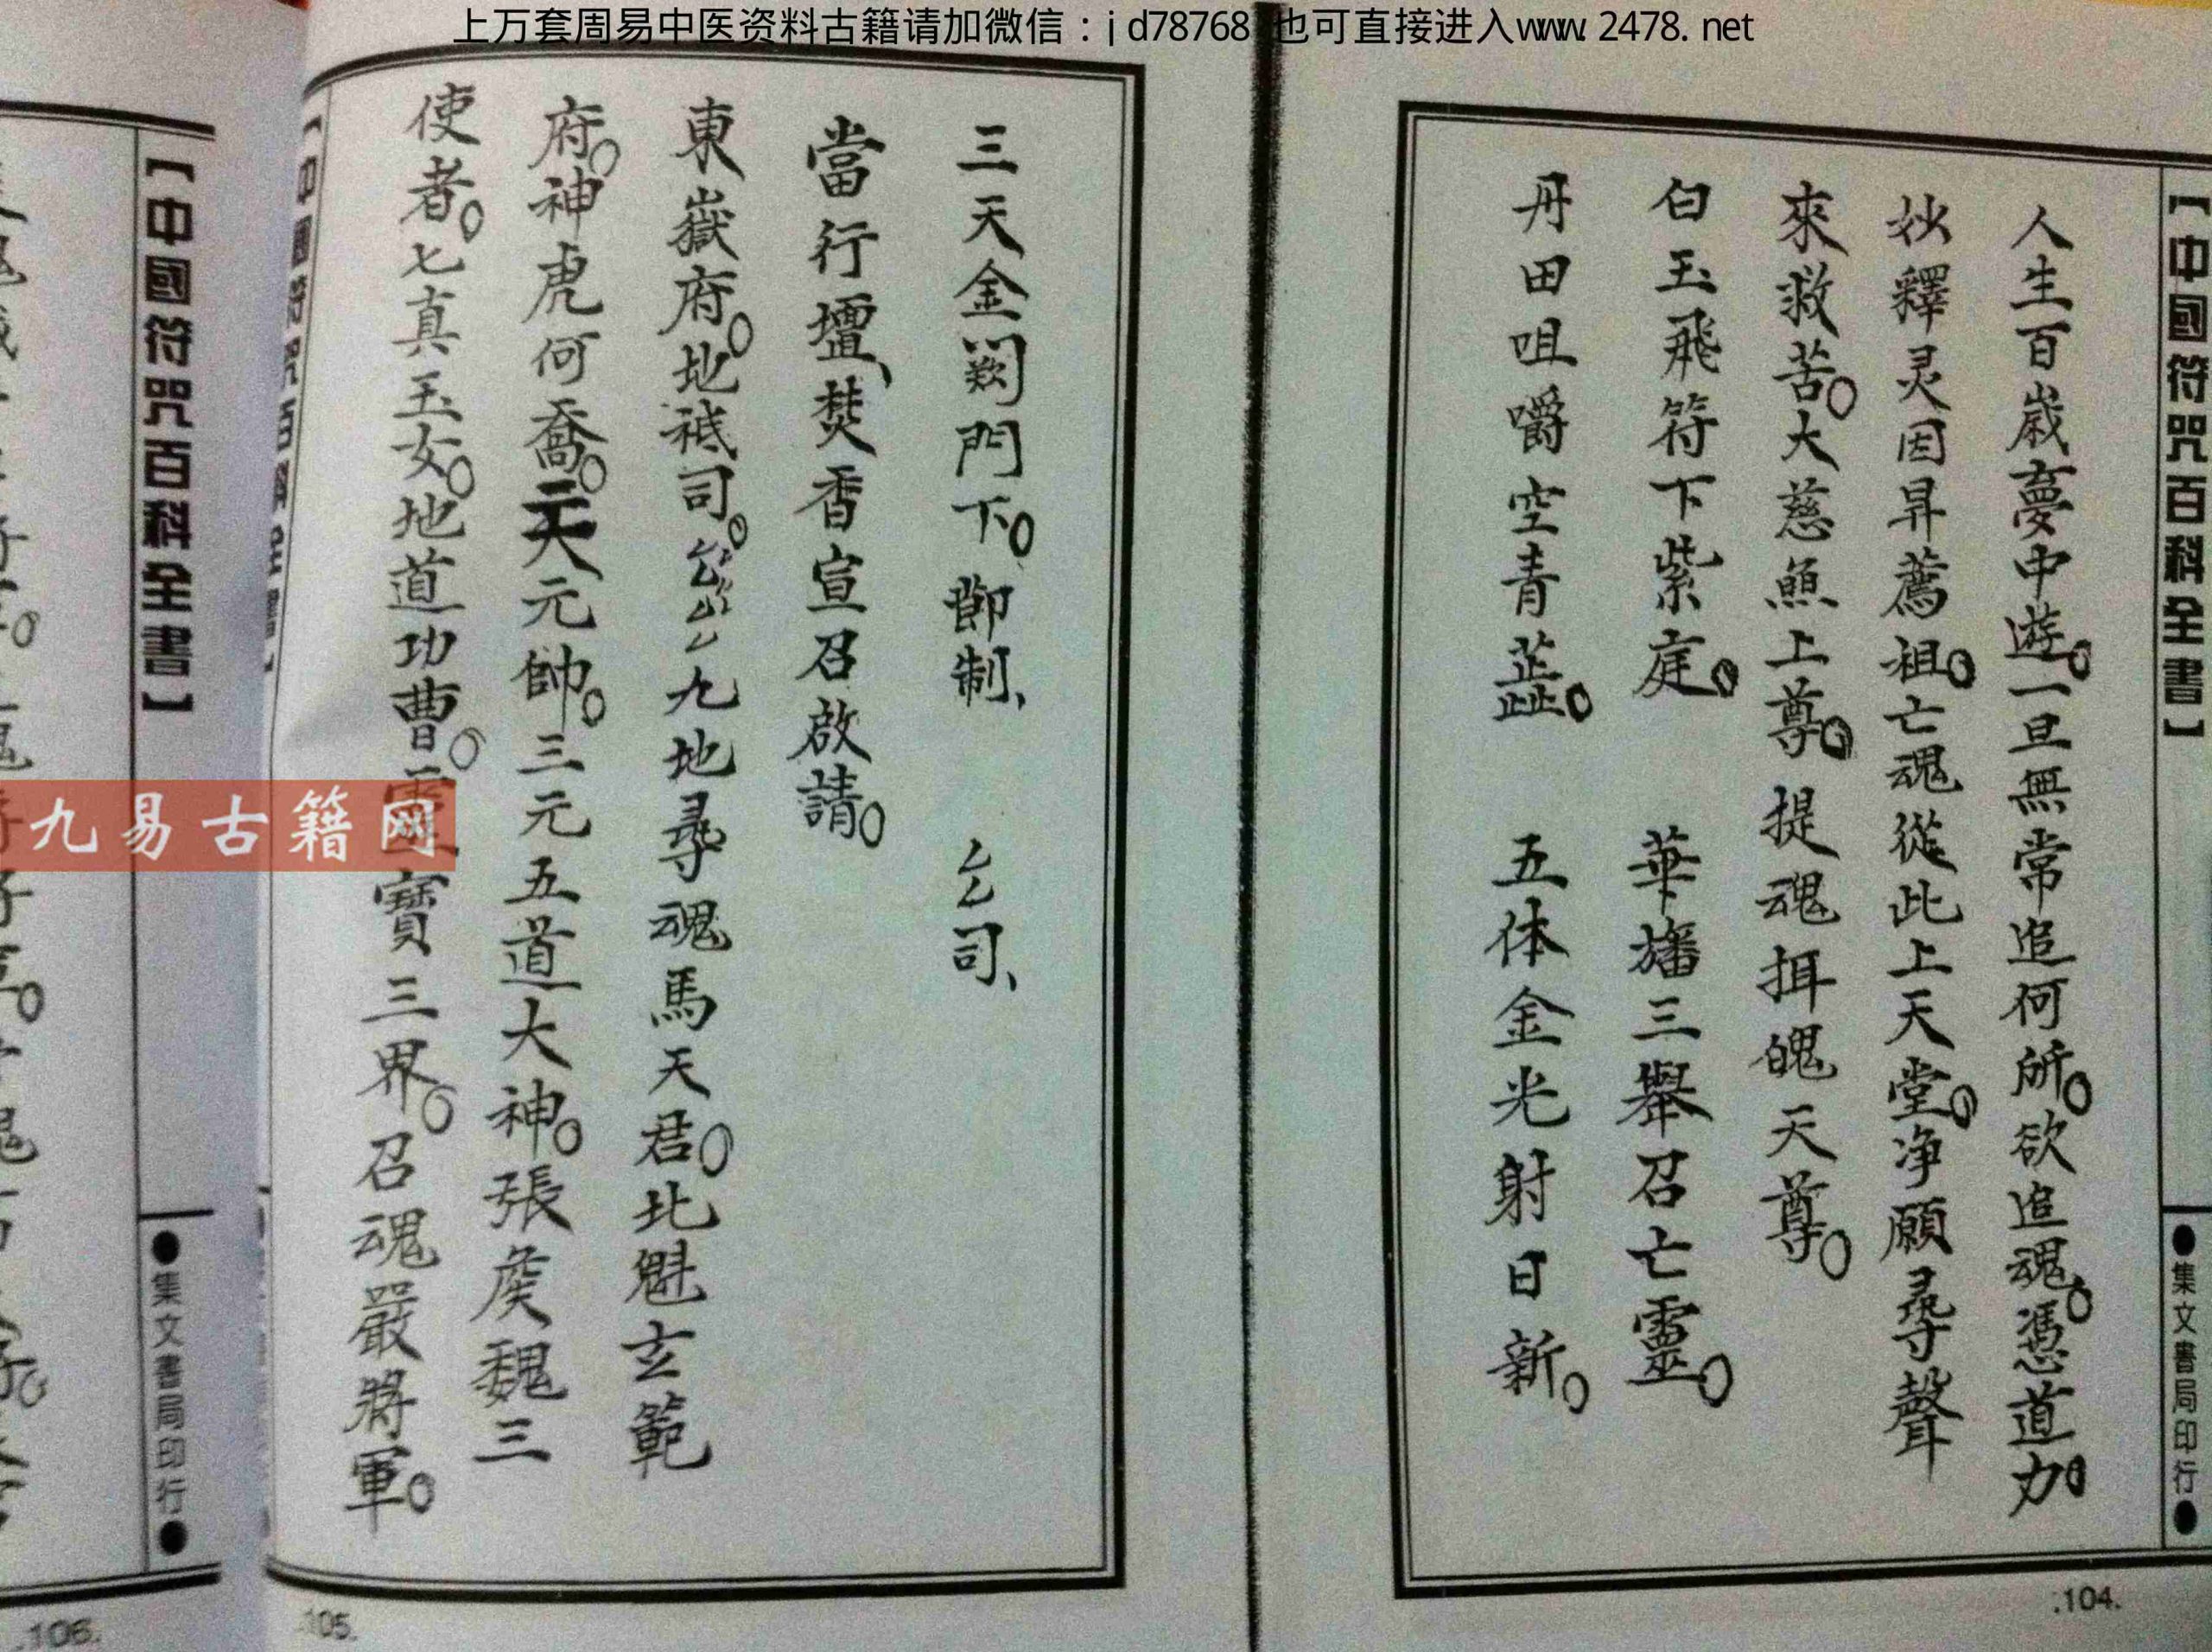 上万套周易中医资料古籍请加微信：jd78768 也可直接进入www.2478.net
【中國符咒百科全書】
●集文書局印行●
人生百歲夢中遊。一旦無常追何所。欲追魂。憑道力。
釋灵因昇薦祖。亡魂從此上天堂。净願尋聲
來救苦。大慈無上尊。提魂揖魄天尊。
白玉飛符下紫庭。 華旛三舉召亡靈。
丹田咀嚼空青蕋。 五体金光射日新。
.104.
三天金闕門下。 節制、 司、
當行壇、焚香宣召啟請。
東嶽府。地祇司。九地尋魂馬天君。北魁玄範
府。神虎何喬。天元帥。三元五道大神。張侯魏三
使者。七真玉女。地道功曹。靈寶三界。召魂嚴將軍。
【中國符咒百科全書】
105.
【中國符咒百科全書】
●集文書局印行●
.106.
九易古籍网